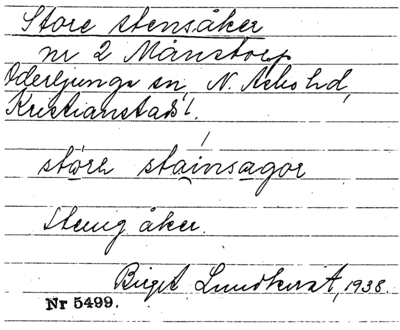 Store stensåker
nr 2 Månstorp
Oderljunga sn, N. Åsbo hd,
Kristianstads l.
störe stainsagor
Stenig åker.
Birgit Lundkvist, 1938.
Nr 5499.